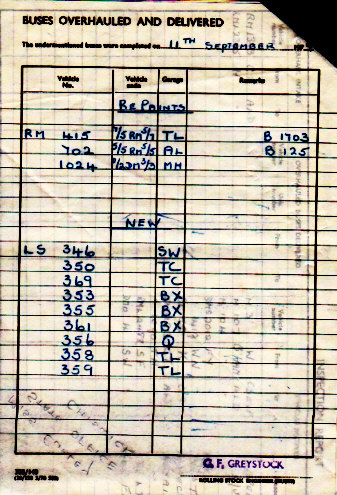 BUSES OVERHAULED AND DELIVERED
The undermentioned buses were completed on 11TH SEPTEMBER 197
Vehicle No. Vehicle code Garage Remarks
REPAINTS
RM 415 7/5 RM 5/7 TL B 1703
702 5/5 RM 5/5 AL B 125
1024 MH
NEW
LS 346 SW
350 TC
369 TC
353 BX
355 BX
361 BX
356 Q
358 TL
359 TL
G. F. GREYSTOCK
ROLLING STOCK ENGINEER (BUSES)